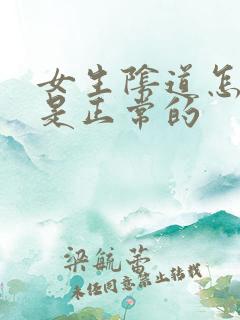 女生阴道怎
是正常的
梁毓蕾
未经同意禁止转载